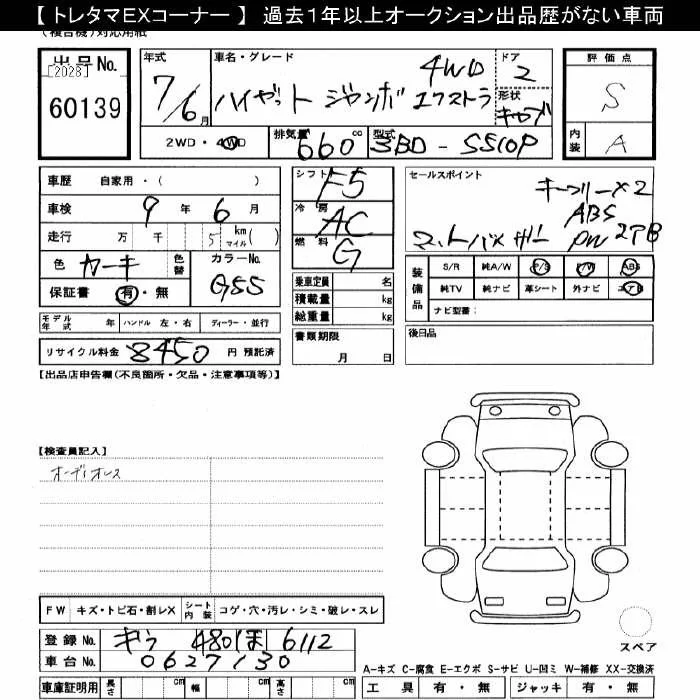 【 トレタマEXコーナー 】 過去1年以上オークション出品歴がない車両
(複合機)対応用紙
出品No. [2028] 60139
年式 7/6月
車名・グレード ハイゼット ジャンボ エクストラ 4WD
ドア 2
形状 キャブ
評価点 S
内装 A
2WD・4WD
排気量 660cc
型式 3BD-S510P
車歴 自家用・( )
車検 9年6月
走行 万 千 5 km マイル( )
色 カーキ 色替
カラーNo. G55
保証書 有・無
シフト F5
冷房 AC
燃料 G
乗車定員 名
積載量 kg
総重量 kg
セールスポイント
キーフリー×2
ABS
マットバイザー PW 2アB
装備品 S/R 純A/W P/S P/W ABS
純TV 純ナビ 革シート 外ナビ エアB
ナビ型番:
モデル年式 年 ハンドル 左・右 ディーラー・並行
書類期限 月 日
後日品
リサイクル料金 8450 円 預託済
【出品店申告欄(不良箇所・欠品・注意事項等)】
【検査員記入】
オーディオレス
FW キズ・トビ石・割レX シート内装 コゲ・穴・汚レ・シミ・破レ・スレ
登録No. 480 6112
車台No. 0627130
スペア
A-キズ C-腐食 E-エクボ S-サビ U-凹ミ W-補修 XX-交換済
車庫証明用 長さ cm 幅 cm 高さ cm
工具 有・無 ジャッキ 有・無